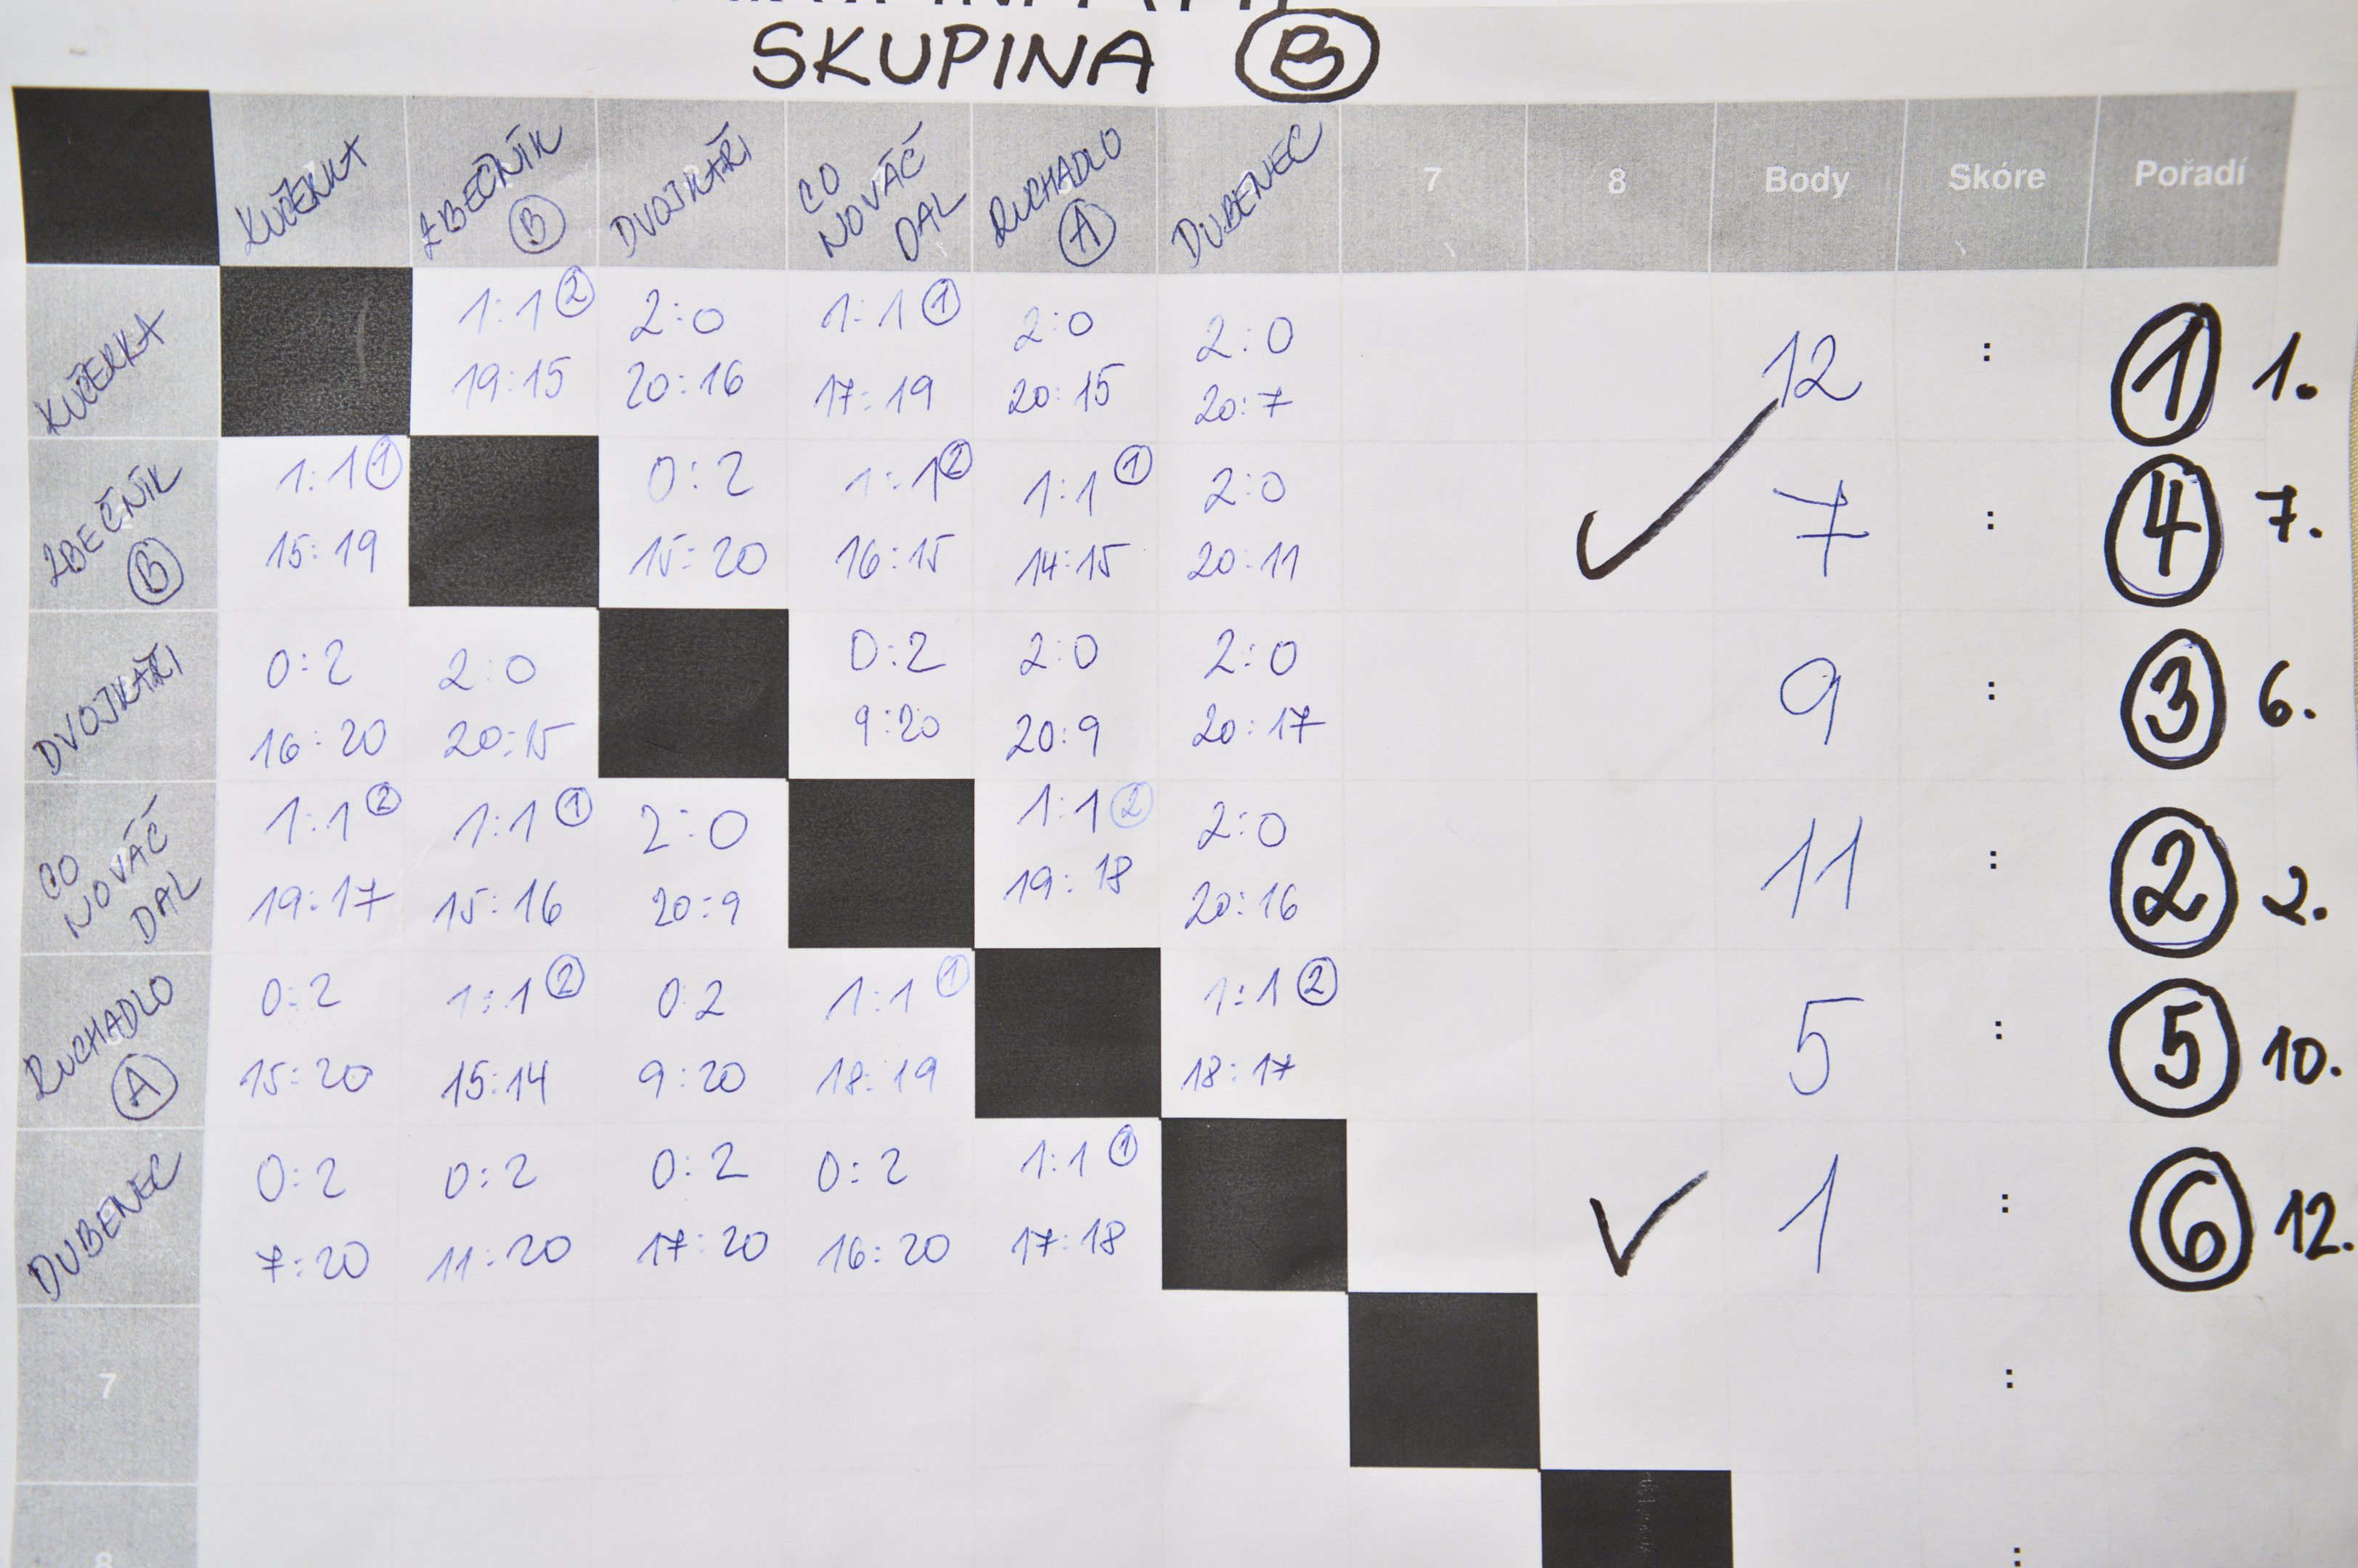 SKUPINA B
KUČERKA ZBEČNÍK B DVOJKAŘI CO NOVÁČ DAL RUCHADLO A DUBENEC 7 8 Body Skóre Pořadí
KUČERKA 1:1 2 2:0 1:1 1 2:0 2:0 12 : 1 1.
19:15 20:16 17:19 20:15 20:7
ZBEČNÍK B 1:1 1 0:2 1:1 2 1:1 1 2:0 7 : 4 7.
15:19 15:20 16:15 14:15 20:11
DVOJKAŘI 0:2 2:0 0:2 2:0 2:0 9 : 3 6.
16:20 20:15 9:20 20:9 20:17
CO NOVÁČ DAL 1:1 2 1:1 1 2:0 1:1 2 2:0 11 : 2 2.
19:17 15:16 20:9 19:18 20:16
RUCHADLO A 0:2 1:1 2 0:2 1:1 1 1:1 2 5 : 5 10.
15:20 15:14 9:20 18:19 18:17
DUBENEC 0:2 0:2 0:2 0:2 1:1 1 1 : 6 12.
7:20 11:20 17:20 16:20 17:18
7 :
8 :